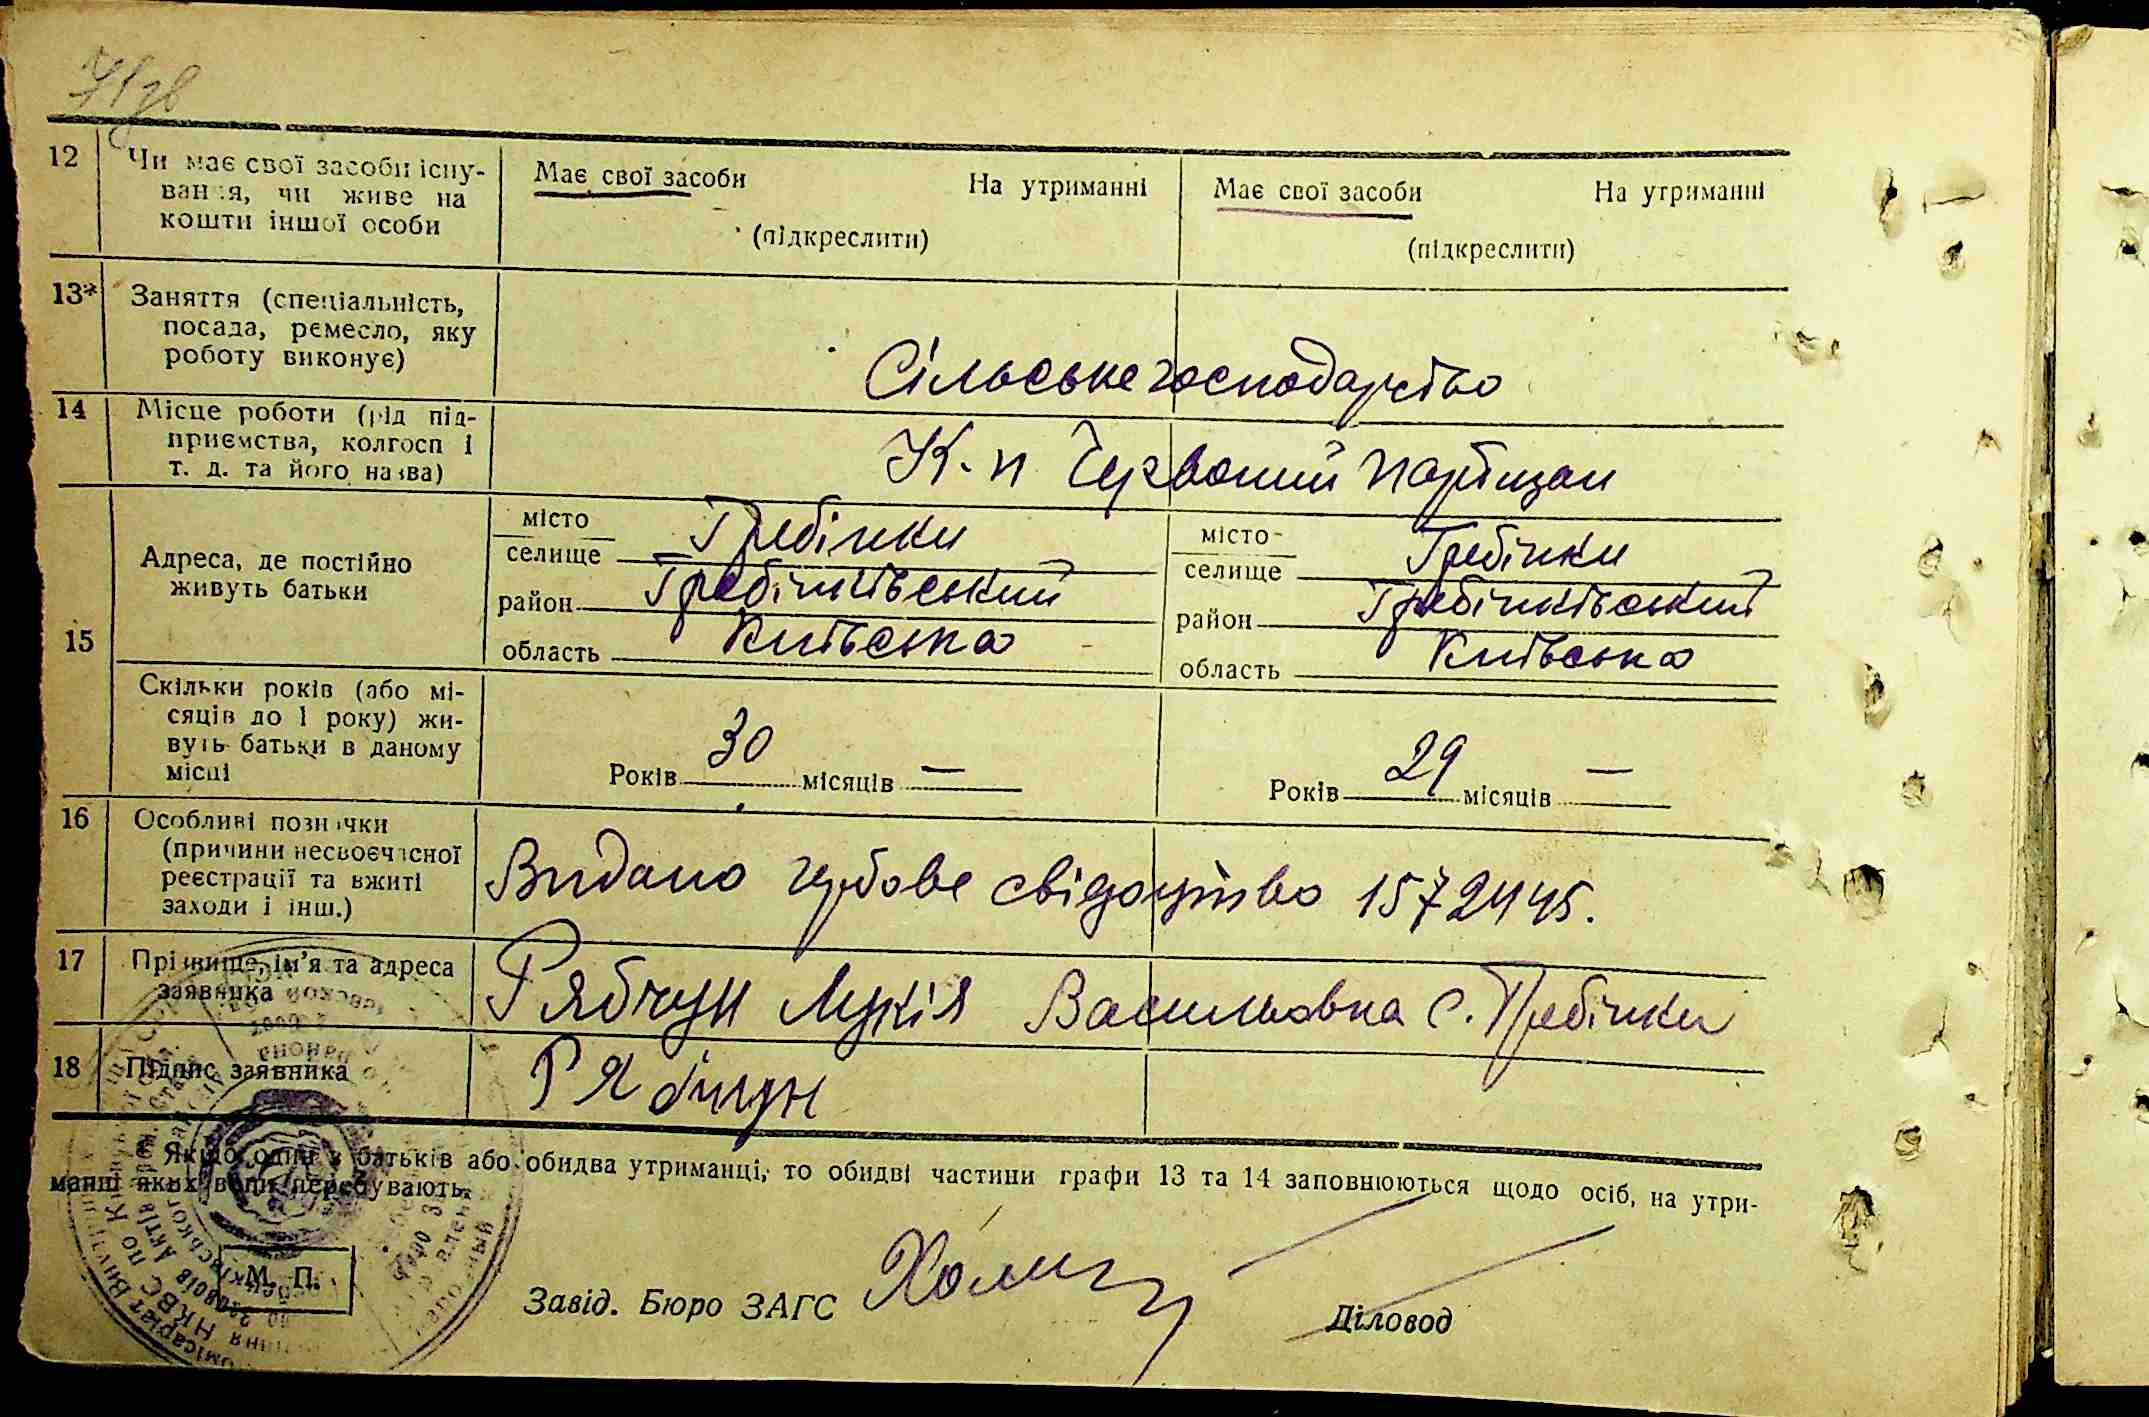 12 Чи має свої засоби існу-
вання, чи живе на
кошти іншої особи
Має свої засоби На утриманні
(підкреслити)
Має свої засоби На утриманні
(підкреслити)
13* Заняття (спеціальність,
посада, ремесло, яку
роботу виконує)
Сільське господарство
14 Місце роботи (рід під-
приємства, колгосп і
т. д. та його назва)
К-п Червоний партизан
15
Адреса, де постійно
живуть батьки
місто
селище Гребінки
район Гребінківський
область Київська
місто
селище Гребінки
район Гребінківський
область Київська
Скільки років (або мі-
сяців до 1 року) жи-
вуть батьки в даному
місці
Років 30 місяців —
Років 29 місяців —
16 Особливі позначки
(причини несвоєчасної
реєстрації та вжиті
заходи і інш.)
Видано гербове свідоцтво
17 Прізвище, ім'я та адреса
заявника
Рябчун Лукія Васильовна с. Гребінки
18 Підпис заявника
Рябчун
Якщо один з батьків або обидва утриманці, то обидві частини графи 13 та 14 заповнюються щодо осіб, на утри-
манні яких вони перебувають.
М. П.
Завід. Бюро ЗАГС
Діловод